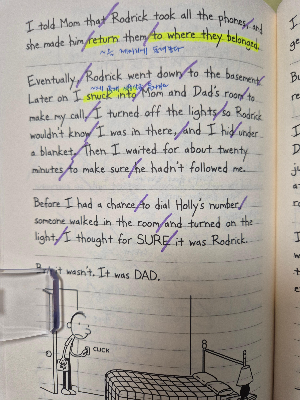 I told Mom that Rodrick took all the phones, and
she made him return them to where they belonged.
Eventually, Rodrick went down to the basement.
Later on I snuck into Mom and Dad's room to
make my call. I turned off the lights so Rodrick
wouldn't know I was in there, and I hid under
a blanket. Then I waited for about twenty
minutes to make sure he hadn't followed me.
Before I had a chance to dial Holly's number,
someone walked in the room and turned on the
light. I thought for SURE it was Rodrick.
But it wasn't. It was DAD.
CLICK